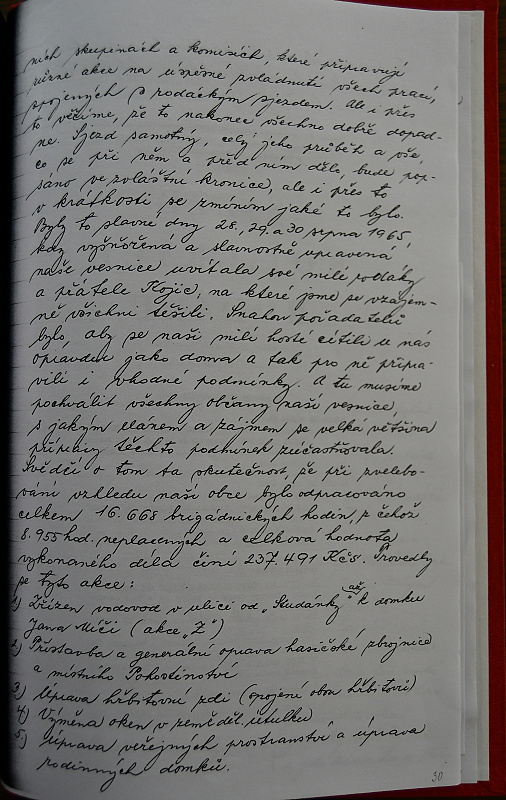 ních skupinách a komisích, které připravují
různé akce na úspěšné zvládnutí všech prací,
spojených s rodáckým sjezdem. Ale i přes
to věříme, že to nakonec všechno dobře dopad-
ne. Sjezd samotný, celý jeho průběh a vše,
co se při něm a před ním dělo, bude pop-
sáno ve zvláštní kronice, ale i přes to
v krátkosti se zmíním jaké to bylo.
Byly to slavné dny 28., 29. a 30 srpna 1965,
kdy vyšňořena a slavnostně upravená
naše vesnice uvítala své milé rodáky
a přátele Kojic, na které jsme se vzájem-
ně všichni těšili. Snahou pořadatelů
bylo, aby se naši milí hosté cítili u nás
opravdu jako doma a tak pro ně připra-
vili i vhodné podmínky. A tu musíme
pochválit všechny občany naší vesnice,
s jakým elánem a zájmem se velká většina
přípravy těchto podmínek zúčastňovala.
Svědčí o tom ta skutečnost, že při zvelebo-
vání vzhledu naší obce bylo odpracováno
celkem 16.668 brigádnických hodin, z čehož
8.955 hod. neplacených a celková hodnota
vykonaného díla činí 237.491 Kčs. Provedly
se tyto akce:
1) Zřízen vodovod v ulici od „Studánky“ až k domku
Jana Míči (akce „Z“)
2) Přístavba a generální oprava hasičské zbrojnice
a místního Pohostinství
3) Úprava hřbitovní zdi (spojení obou hřbitovů)
4) Výměna oken v zeměděl. útulku
5) Úprava veřejných prostranství a úprava
rodinných domků.
30